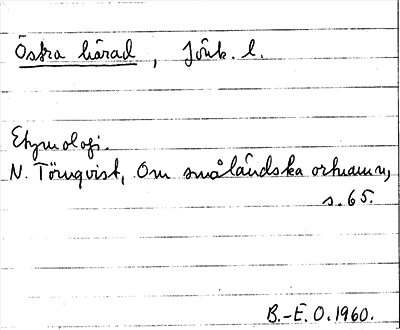 Östra härad, Jönk. l.
Etymologi.
N. Törnqvist, Om småländska ortnamn,
s. 65.
B.-E. O. 1960.